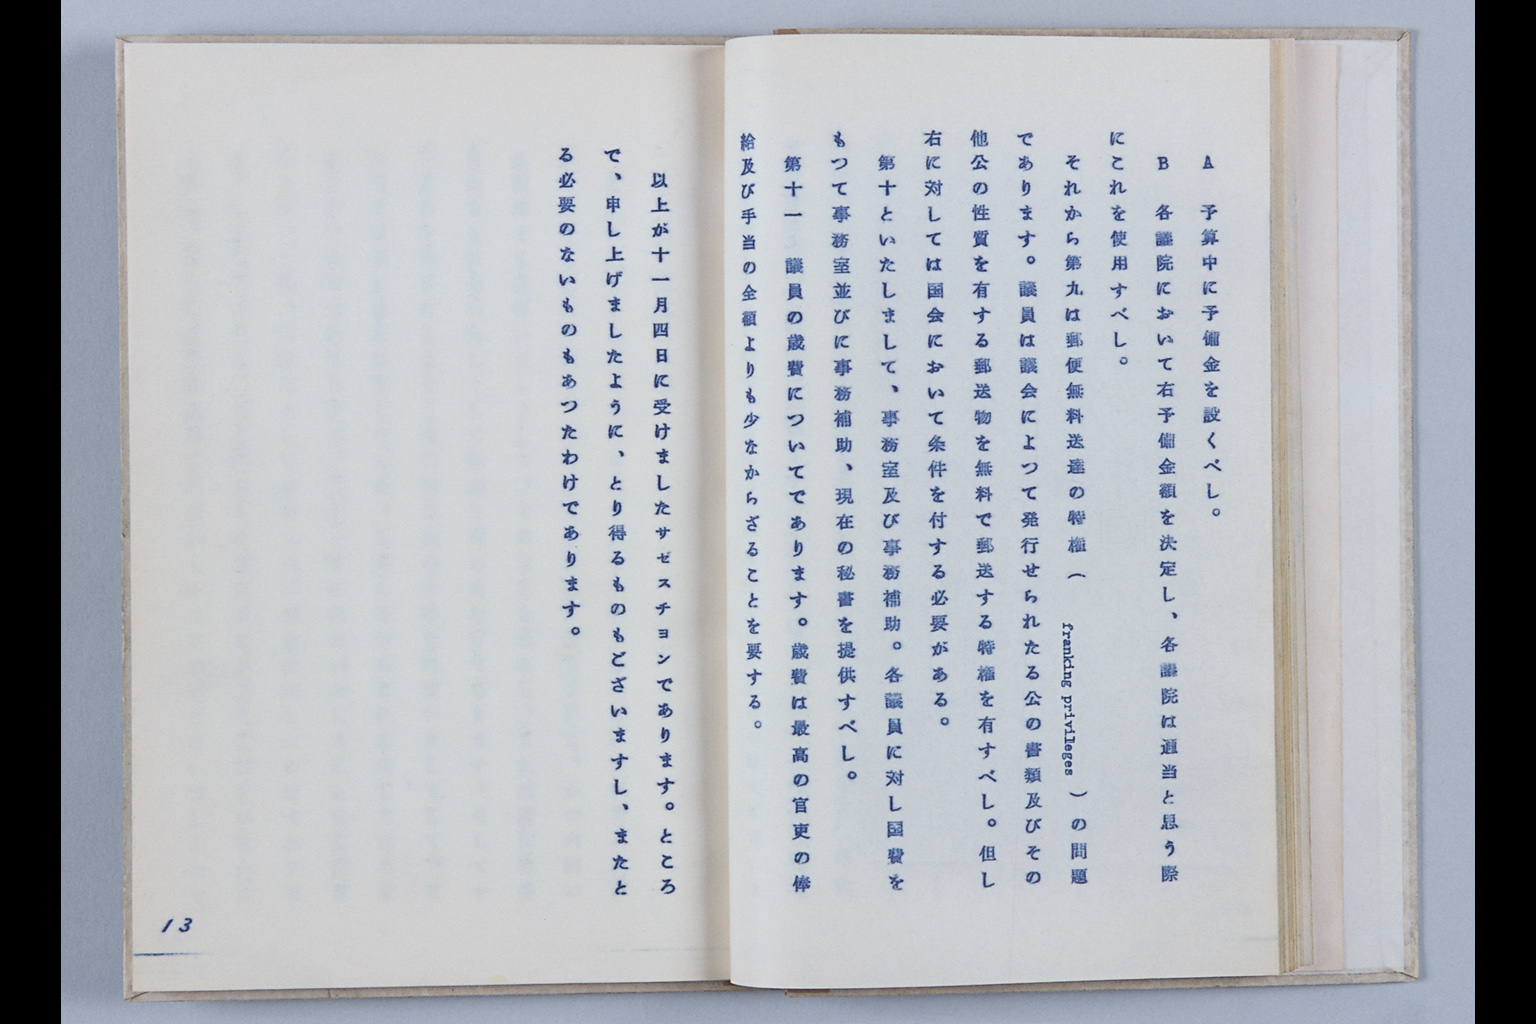 A　予算中に予備金を設くべし。
B　各議院において右予備金額を決定し、各議院は適当と思う際
にこれを使用すべし。
それから第九は郵便無料送達の特権（franking privileges）の問題
であります。議員は議会によつて発行せられたる公の書類及びその
他公の性質を有する郵送物を無料で郵送する特権を有すべし。但し
右に対しては国会において条件を付する必要がある。
第十といたしまして、事務室及び事務補助。各議員に対し国費を
もつて事務室並びに事務補助、現在の秘書を提供すべし。
第十一　議員の歳費についてであります。歳費は最高の官吏の俸
給及び手当の全額よりも少なからざることを要する。
以上が十一月四日に受けましたサゼスチヨンであります。ところ
で、申し上げましたように、とり得るものもございますし、またと
る必要のないものもあつたわけであります。
13